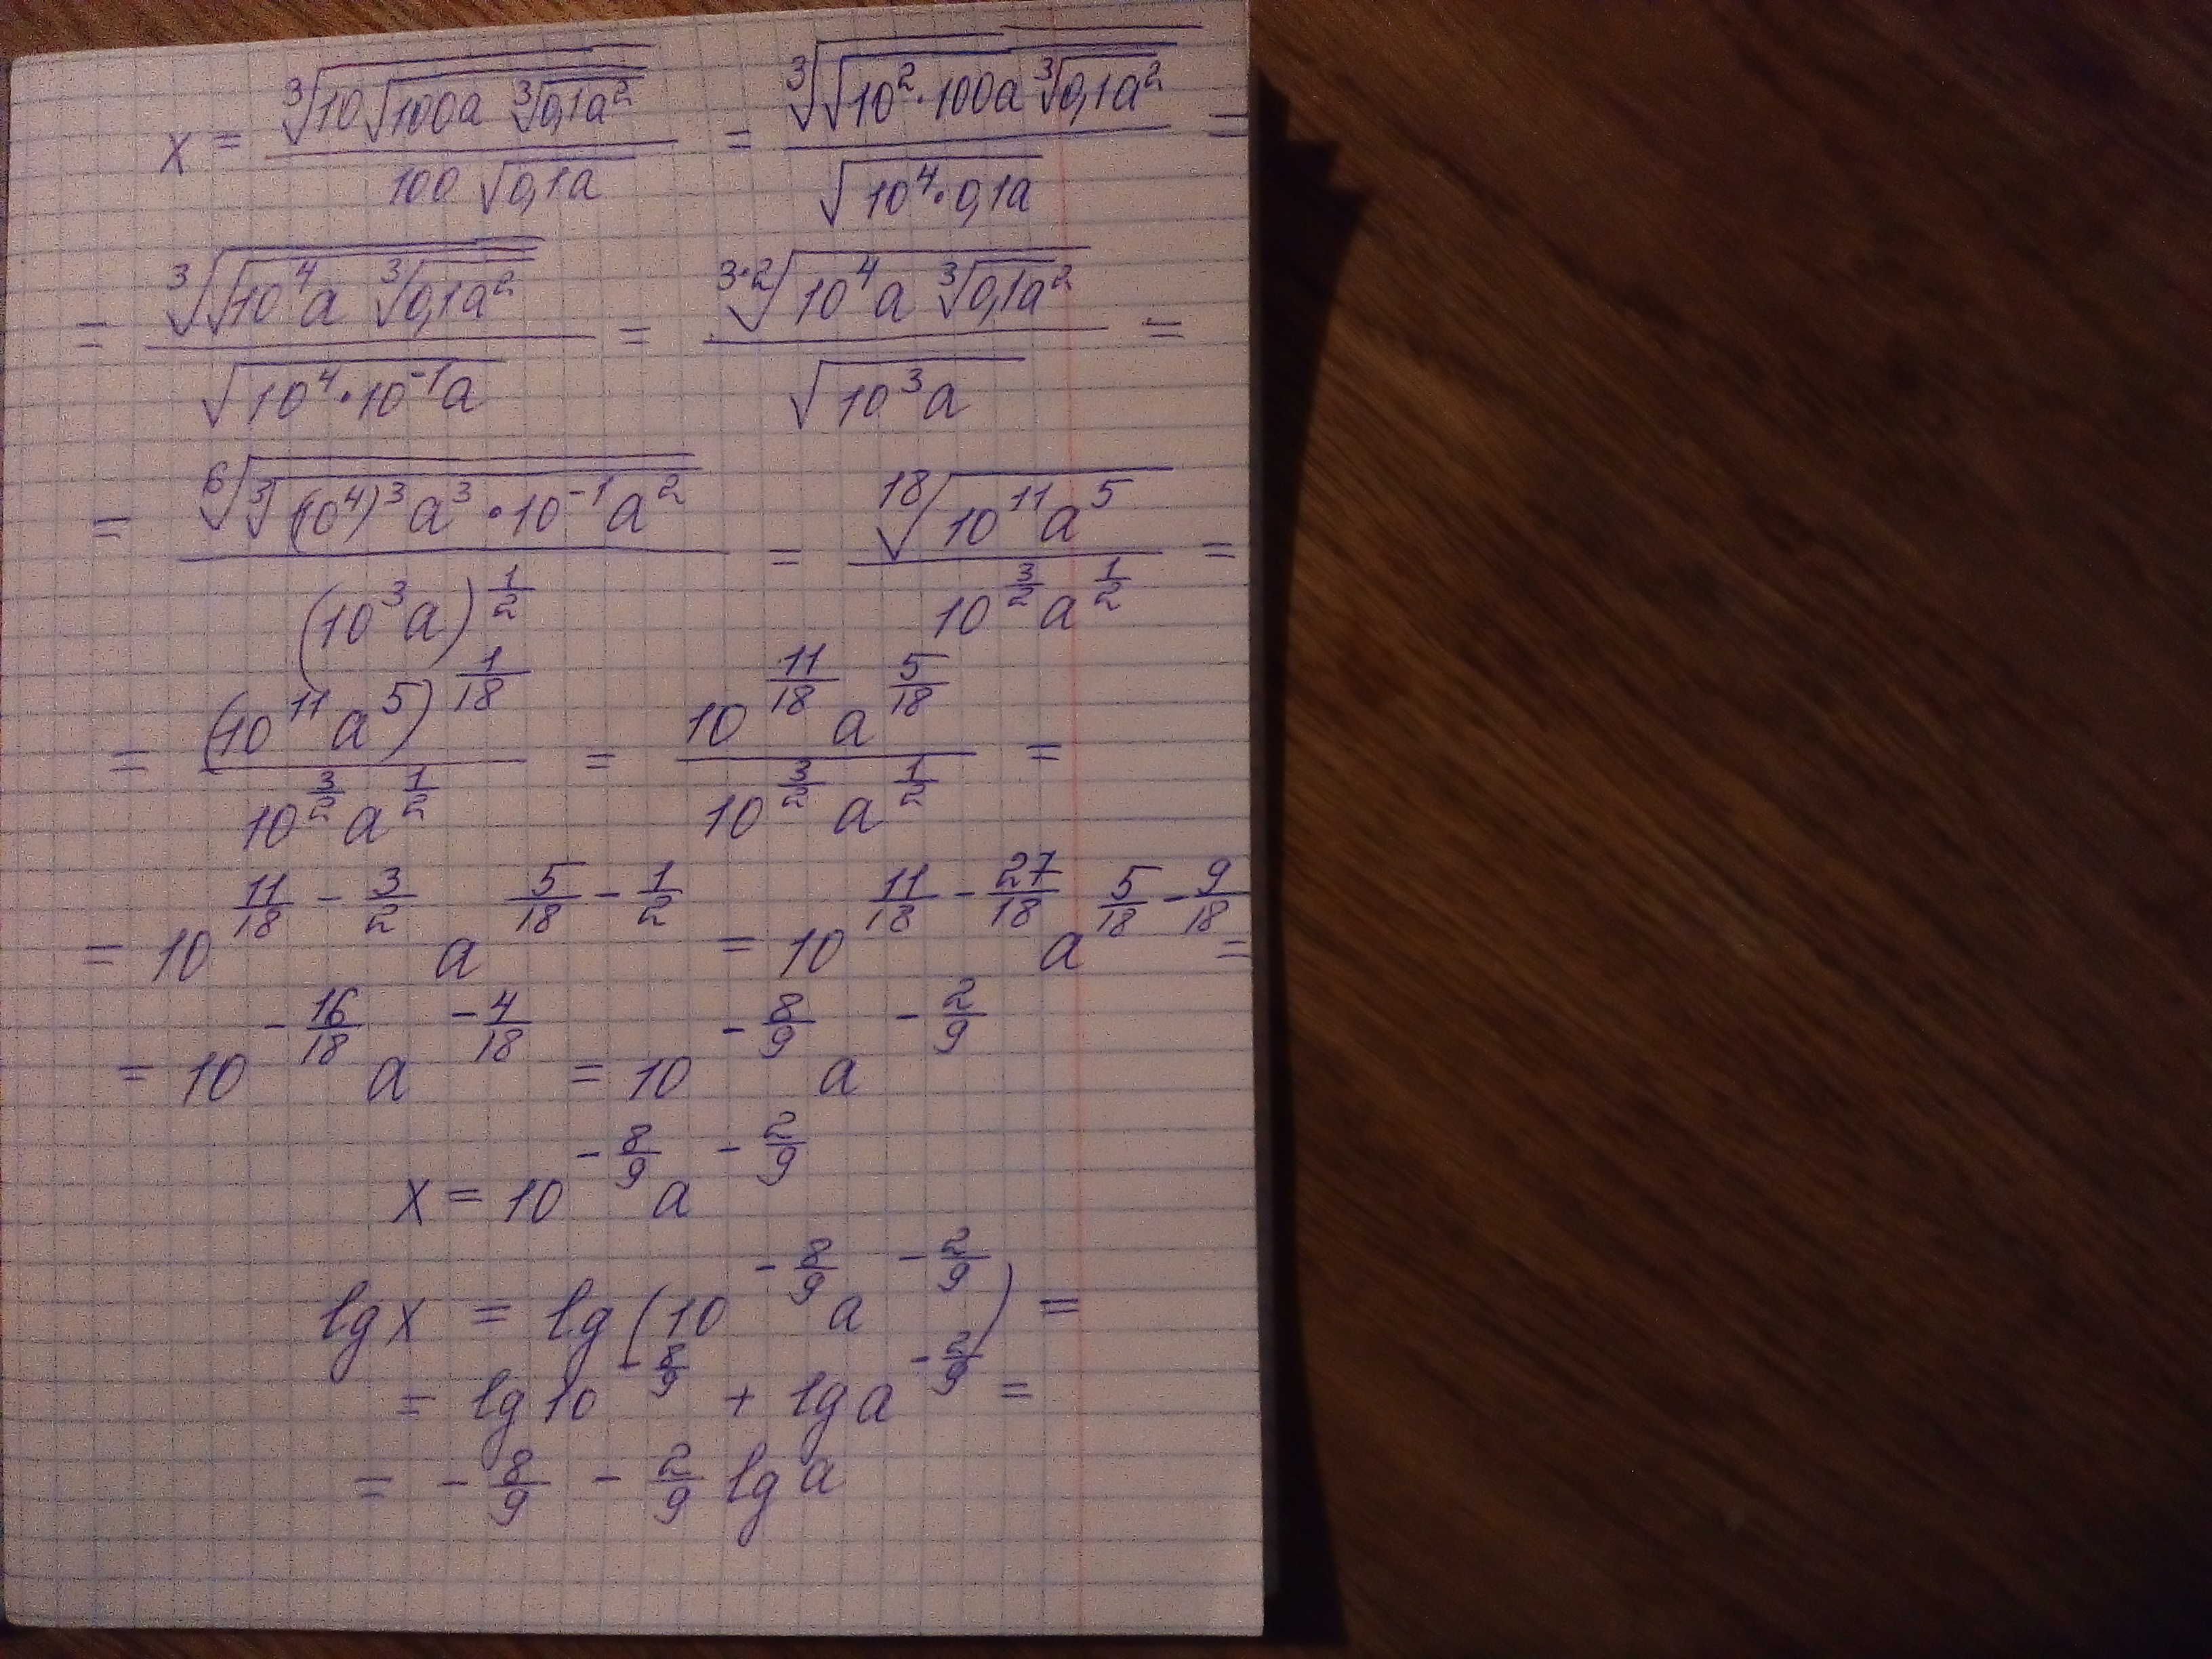 x = \frac{\sqrt[3]{10\sqrt{100a\sqrt[3]{0,1a^2}}}}{100\sqrt{0,1a}} = \frac{\sqrt[3]{\sqrt{10^2 \cdot 100a\sqrt[3]{0,1a^2}}}}{\sqrt{10^4 \cdot 0,1a}} =
= \frac{\sqrt[3]{\sqrt{10^4a\sqrt[3]{0,1a^2}}}}{\sqrt{10^4 \cdot 10^{-1}a}} = \frac{\sqrt[3 \cdot 2]{10^4a\sqrt[3]{0,1a^2}}}{\sqrt{10^3a}} =
= \frac{\sqrt[6]{\sqrt[3]{(10^4)^3a^3 \cdot 10^{-1}a^2}}}{(10^3a)^{\frac{1}{2}}} = \frac{\sqrt[18]{10^{11}a^5}}{10^{\frac{3}{2}}a^{\frac{1}{2}}} =
= \frac{(10^{11}a^5)^{\frac{1}{18}}}{10^{\frac{3}{2}}a^{\frac{1}{2}}} = \frac{10^{\frac{11}{18}}a^{\frac{5}{18}}}{10^{\frac{3}{2}}a^{\frac{1}{2}}} =
= 10^{\frac{11}{18}-\frac{3}{2}}a^{\frac{5}{18}-\frac{1}{2}} = 10^{\frac{11}{18}-\frac{27}{18}}a^{\frac{5}{18}-\frac{9}{18}} =
= 10^{-\frac{16}{18}}a^{-\frac{4}{18}} = 10^{-\frac{8}{9}}a^{-\frac{2}{9}}
x = 10^{-\frac{8}{9}}a^{-\frac{2}{9}}
lg x = lg(10^{-\frac{8}{9}}a^{-\frac{2}{9}}) =
= lg 10^{-\frac{8}{9}} + lg a^{-\frac{2}{9}} =
= -\frac{8}{9} - \frac{2}{9} lg a